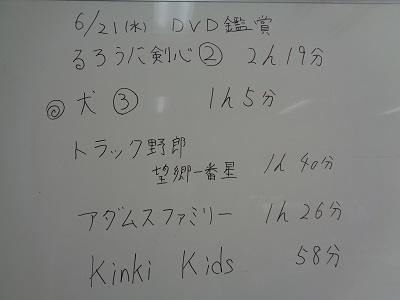 6/21(水) DVD鑑賞
るろうに剣心② 2h19分
◎犬③ 1h5分
トラック野郎
望郷一番星 1h40分
アダムスファミリー 1h26分
Kinki Kids 58分